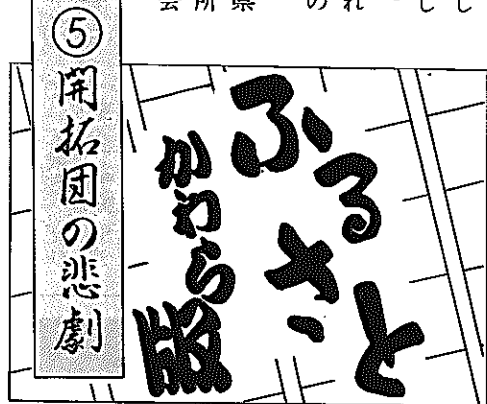 し
し
れ
の
県
所
会
ふるさと
かわら版
⑤開拓団の悲劇